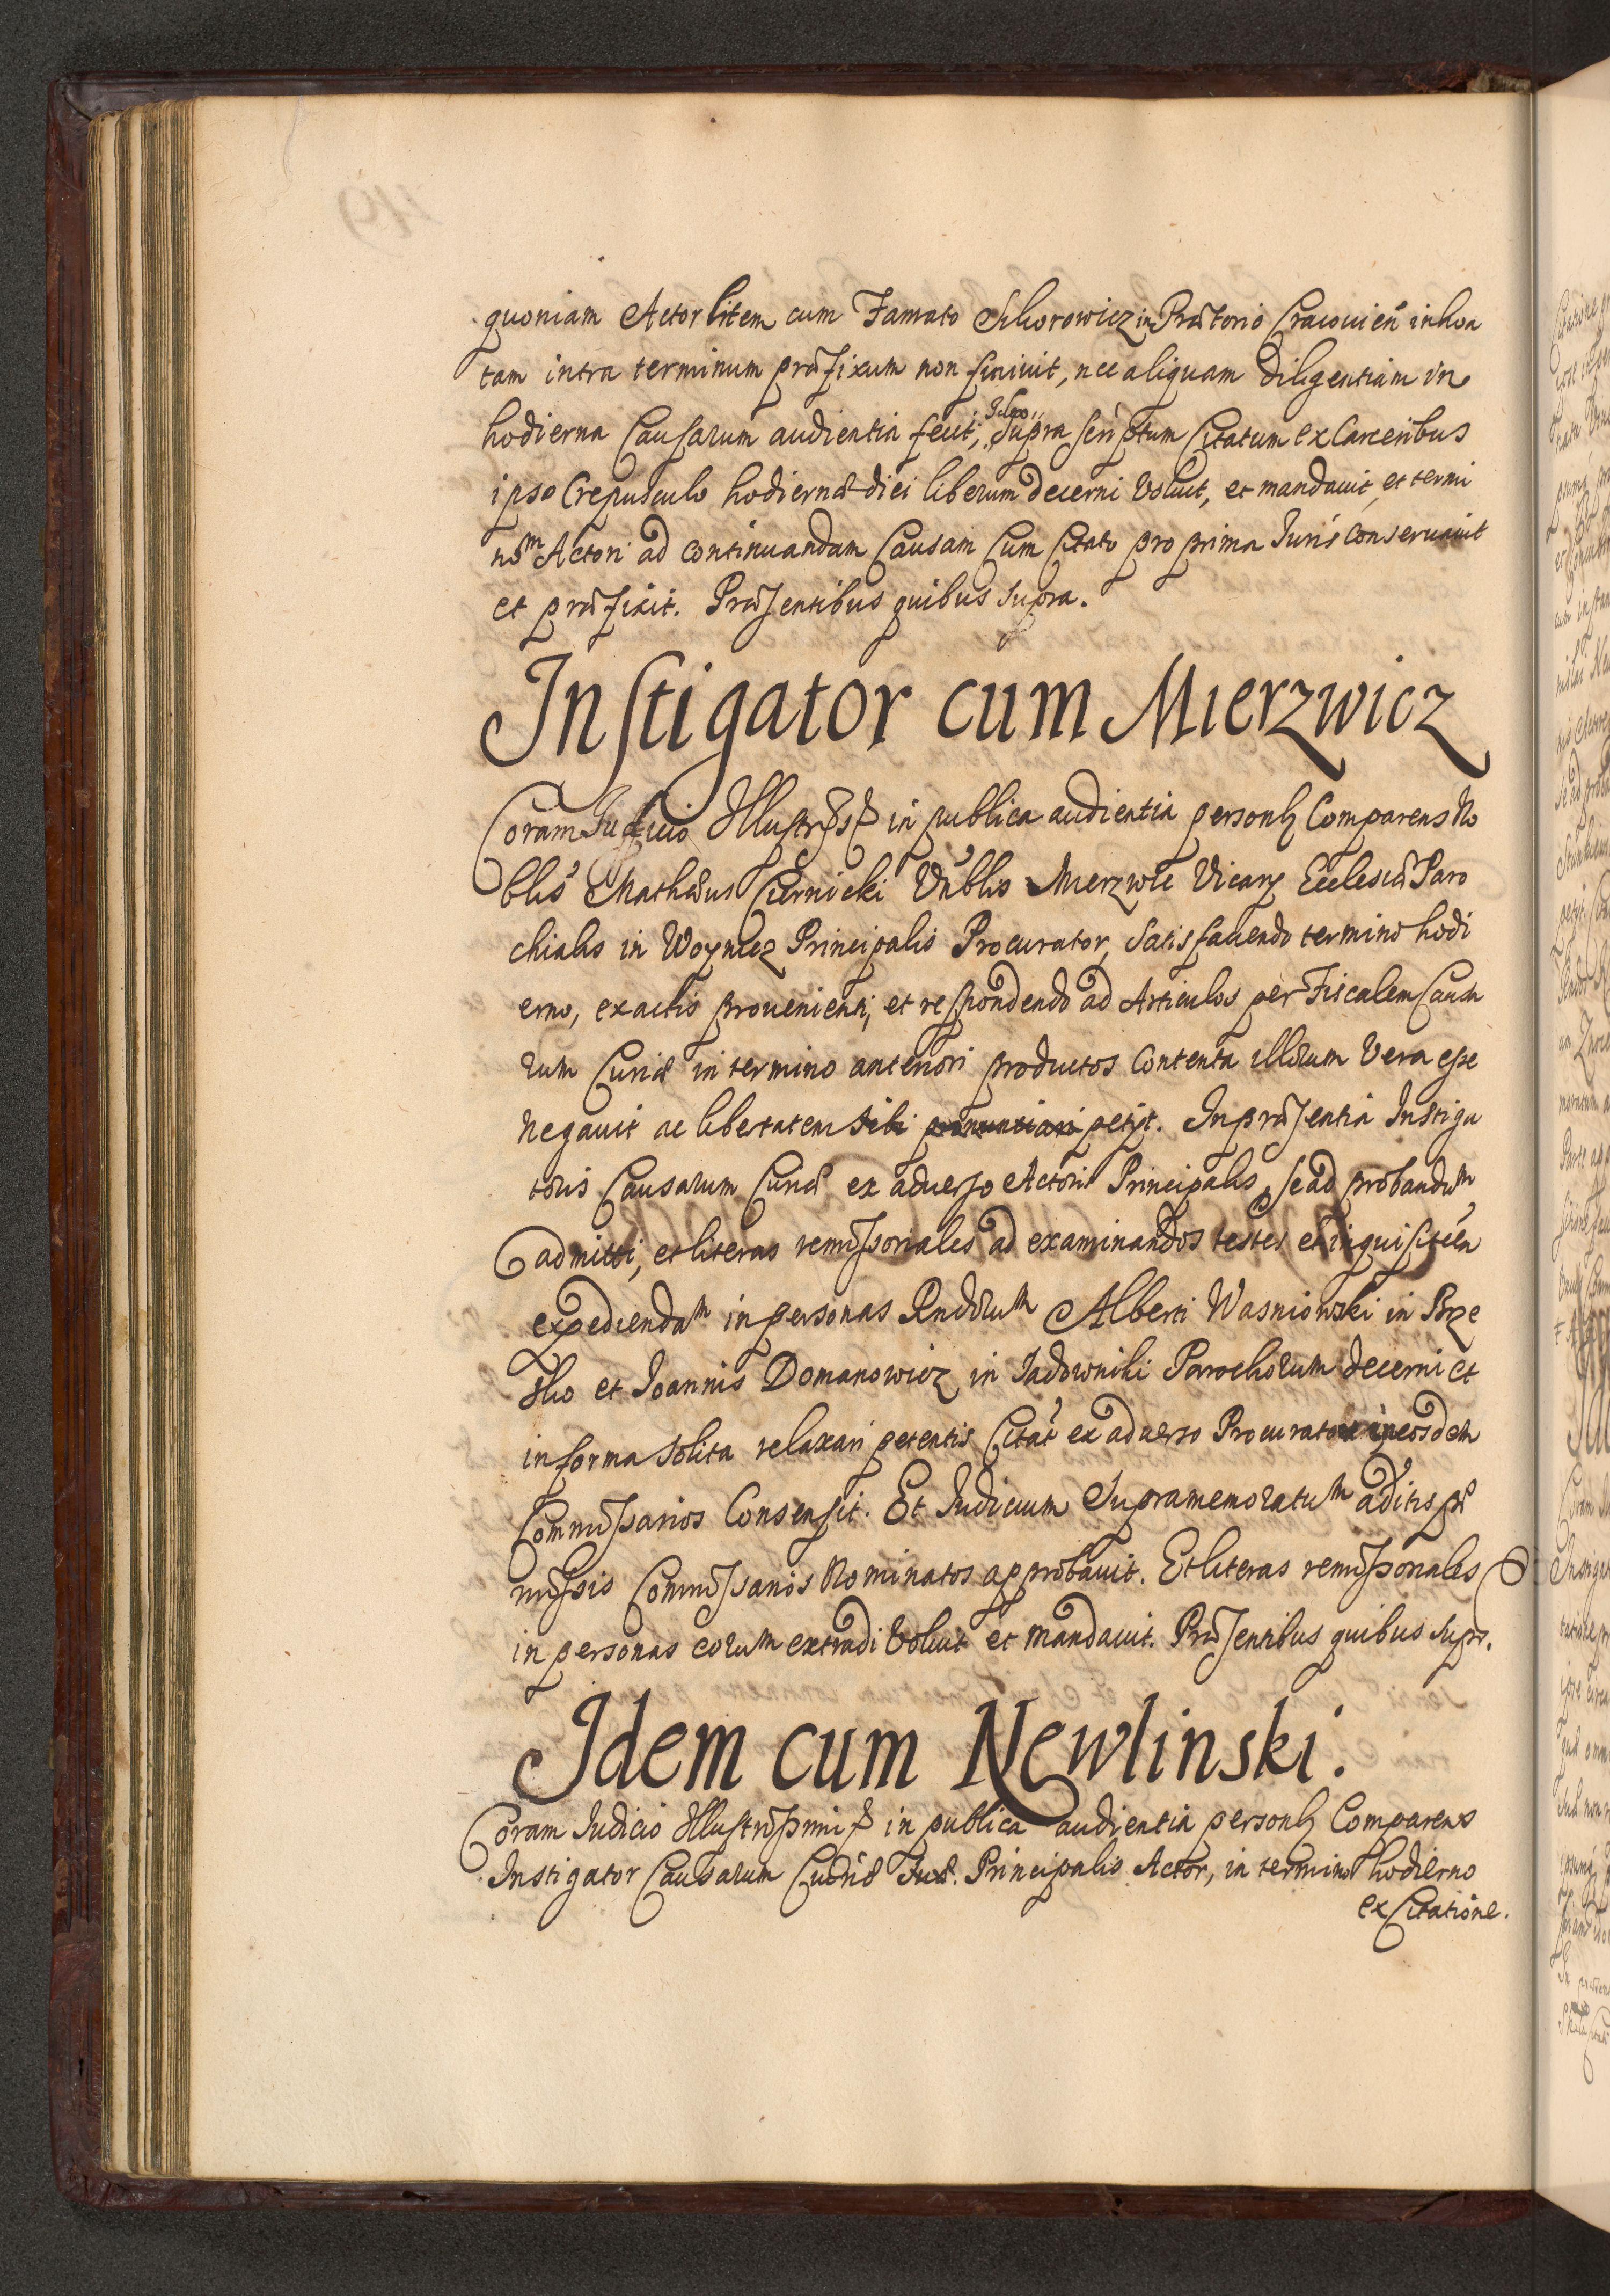 quoniam Actor litem cum Famato Sikorowicz in Prætorio Cracouien inhoa
tam intra terminum præfixum non finiuit, nec aliquam diligentiam in
hodierna Causarum audientia fecit, Supra scriptum Citatum ex Carceribus
ipso Crepusculo hodiernæ diei liberum decerni Voluit, et mandauit, et termi
num Actori ad continuandam Causam Cum Citato pro prima Iuris conseruauit
et præfixit. Præsentibus quibus supra.
Instigator cum Mierzwicz
Coram Iudicio Illustriss in publica audientia personlr Comparens No
blis Mathæus Czernicki Vnblis Mierzwic Vicary Ecclesiæ Paro
chialis in Woynicz Principalis Procurator, satisfaciendo termino hodi
erno, ex actis prouenienti, et respondendo ad Articulos per Fiscalem Causa
rum Curiæ in termino anteriori productos Contenta illorum Vera esse
negauit ac libertatem sibi pronuntiari petijt. In præsentia Instiga
toris Causarum Curiæ ex aduerso Actoris Principalis, se ad probandum
admitti, et literas remissoriales ad examinandos testes et inquisitiēn
expediendam in personas Rndorum Alberti Wasniowski in Brze
sko et Ioannis Domanowicz in Iadowniki Parochorum decerni et
in forma solita relaxari petentis Citat ex aduerso Procurator in eosdem
Commissarios Consensit. Et Iudicium Supramemoratum aditis præ
missis Commissarios Nominatos approbauit. Et literas remissoriales
in personas eorum extradi Voluit et mandauit. Præsentibus quibus supr.
Idem cum Newlinski.
Coram Iudicio Illustrissimi in publica audientia personlr Comparens
Instigator Causarum Curiæ Principalis Actor, in termino hodierno
ex Citatione.